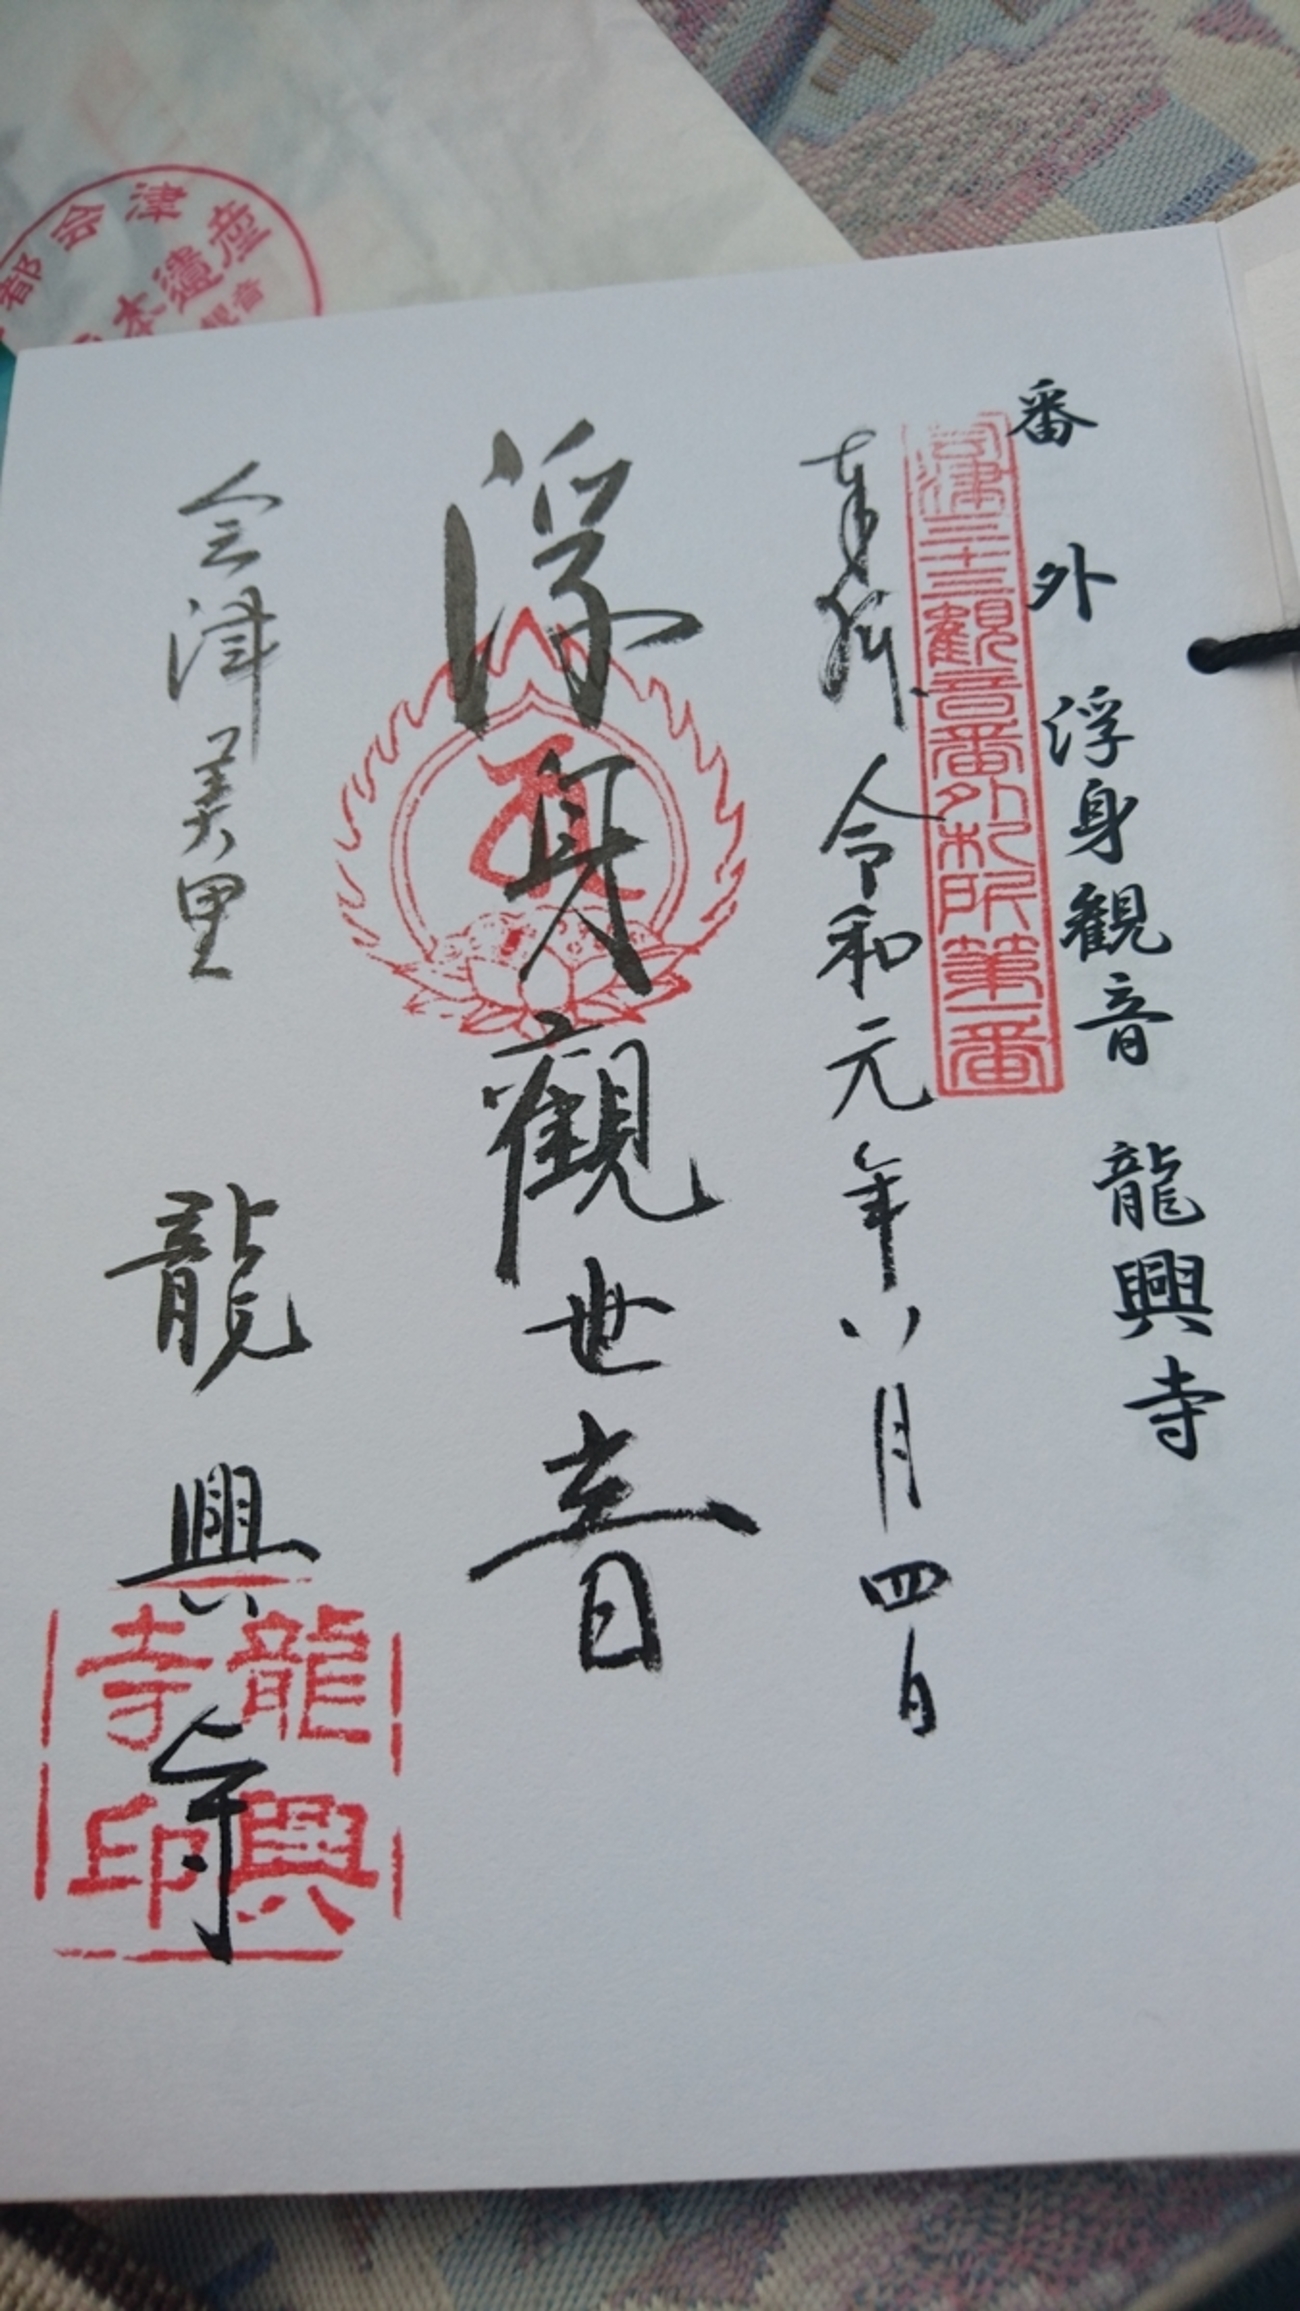 番外 浮身観音 龍興寺
会津三十三観音番外札所第一番
奉拝 令和元年八月四日
浮身觀世音
会津美里 龍興寺
龍興寺印
都会津
本遺産
観音